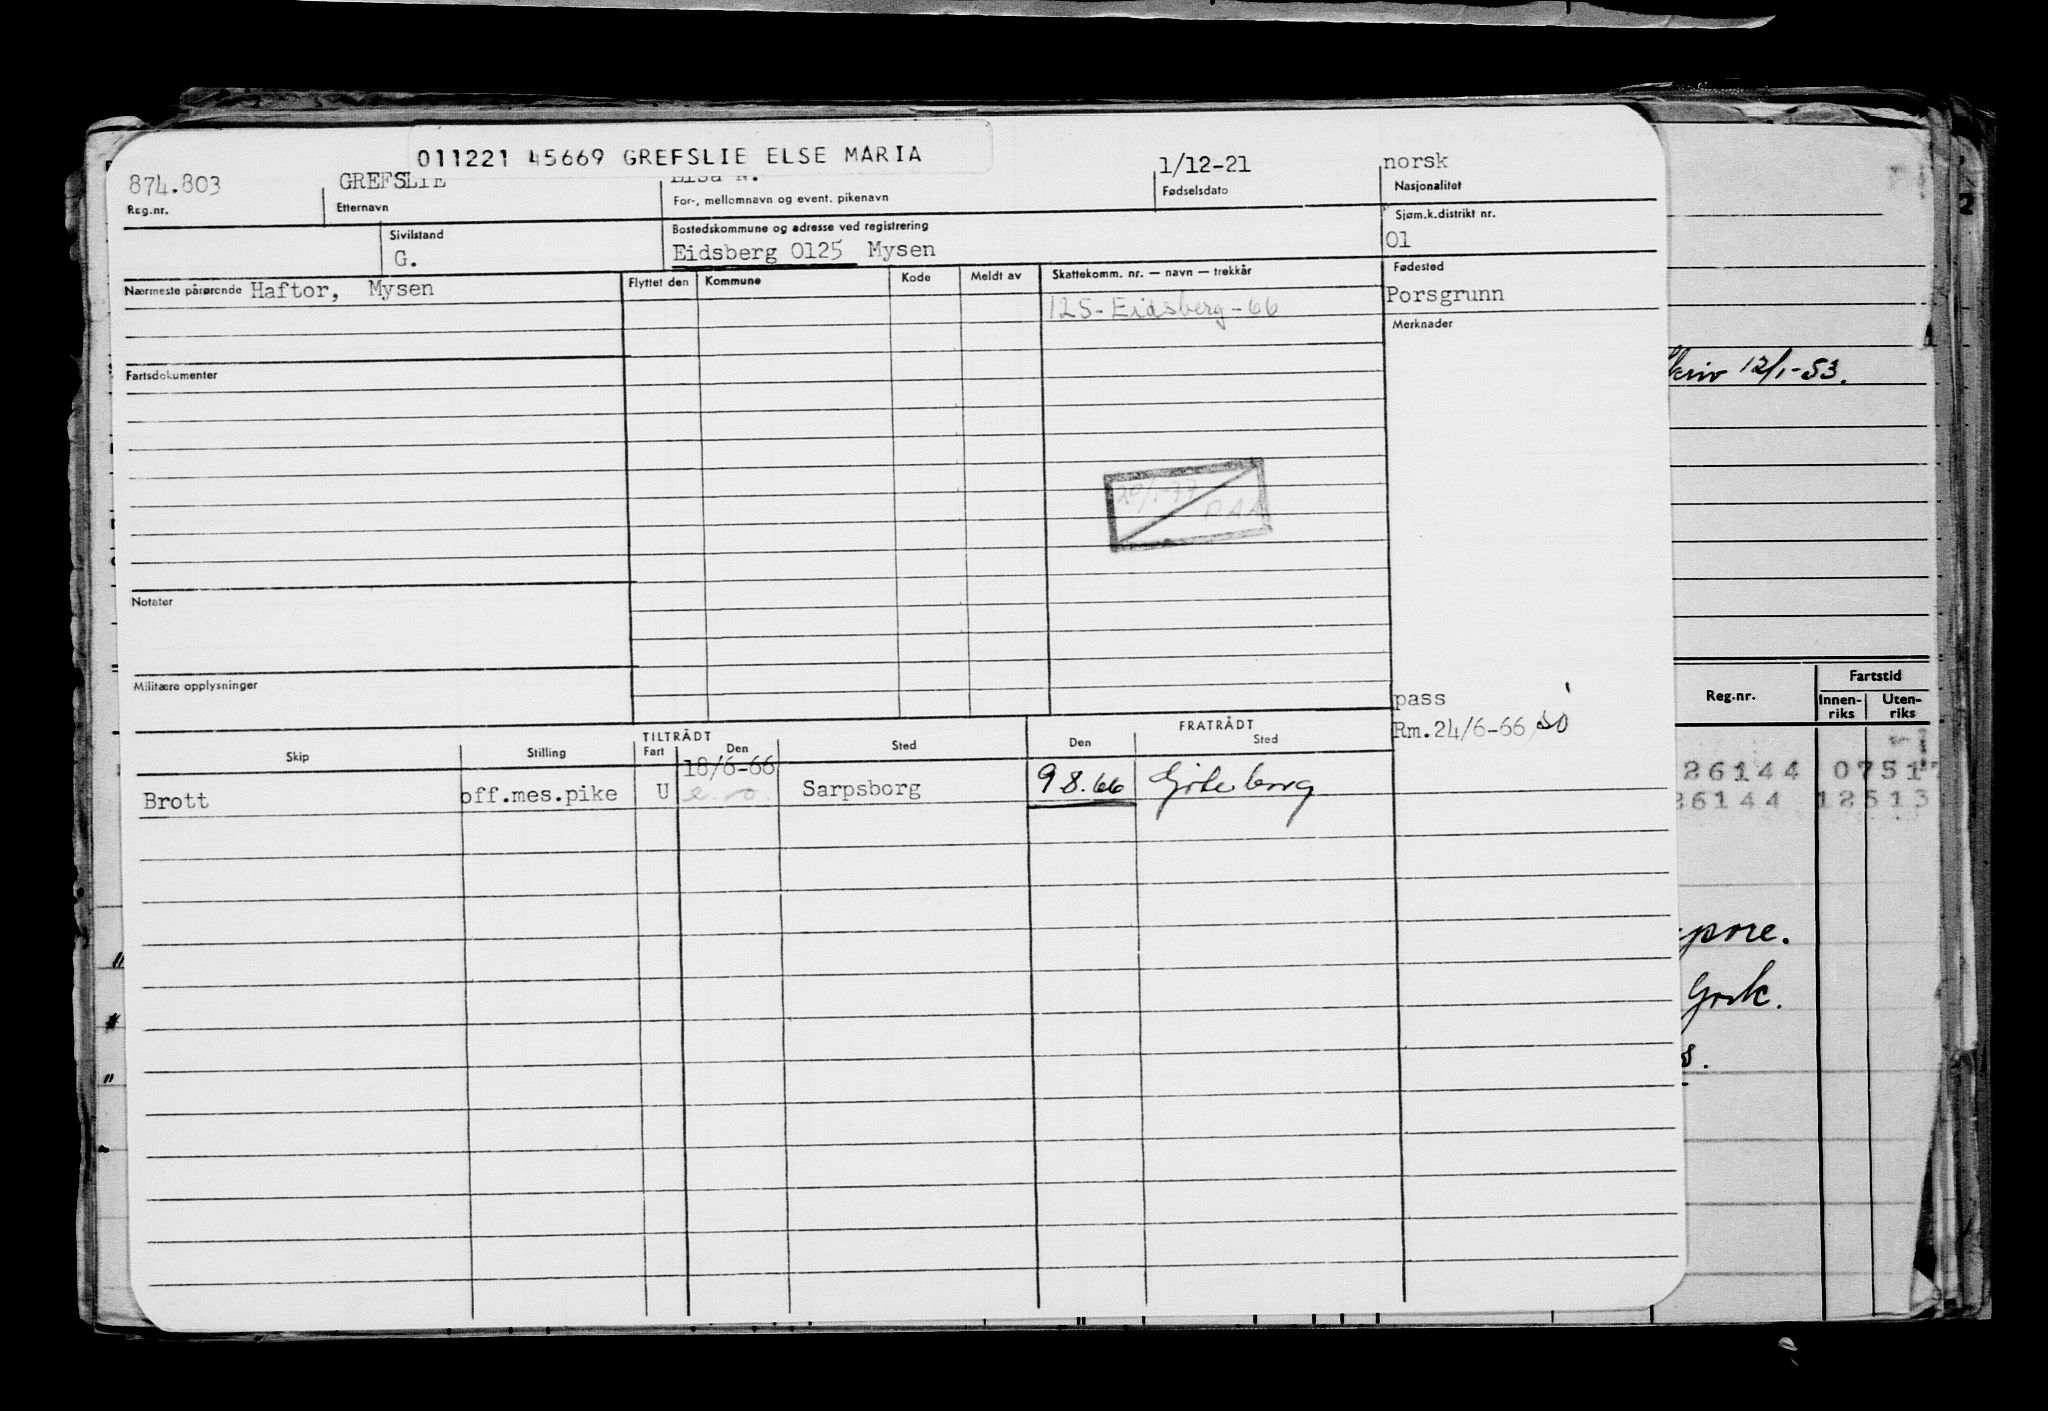 011221 45669 GREFSLIE ELSE MARIA
874.803 GREFSLIE Elsa M. 1/12-21 norsk
Reg.nr. Etternavn For-, mellomnavn og event. pikenavn Fødselsdato Nasjonalitet
Sivilstand Bostedskommune og adresse ved registrering Sjøm.k.distrikt nr.
G. Eidsberg 0125 Mysen 01
Nærmeste pårørende Haftor, Mysen Flyttet den Kommune Kode Meldt av Skattekomm. nr. — navn — trekkår Fødested
125-Eidsberg-66 Porsgrunn
Merknader
Fartsdokumenter
12/1-53.
20/1-77
Notater
Militære opplysninger
pass
Rm.24/6-66
Reg.nr. Fartstid
Innen-riks Uten-riks
TILTRÅDT FRATRÅDT
Skip Stilling Fart Den Sted Den Sted
18/6-66
Brott off.mes.pike U e.o. Sarpsborg 9 8.66 Göteborg
26144 0751
26144 12513
pore.
Gork.
s.